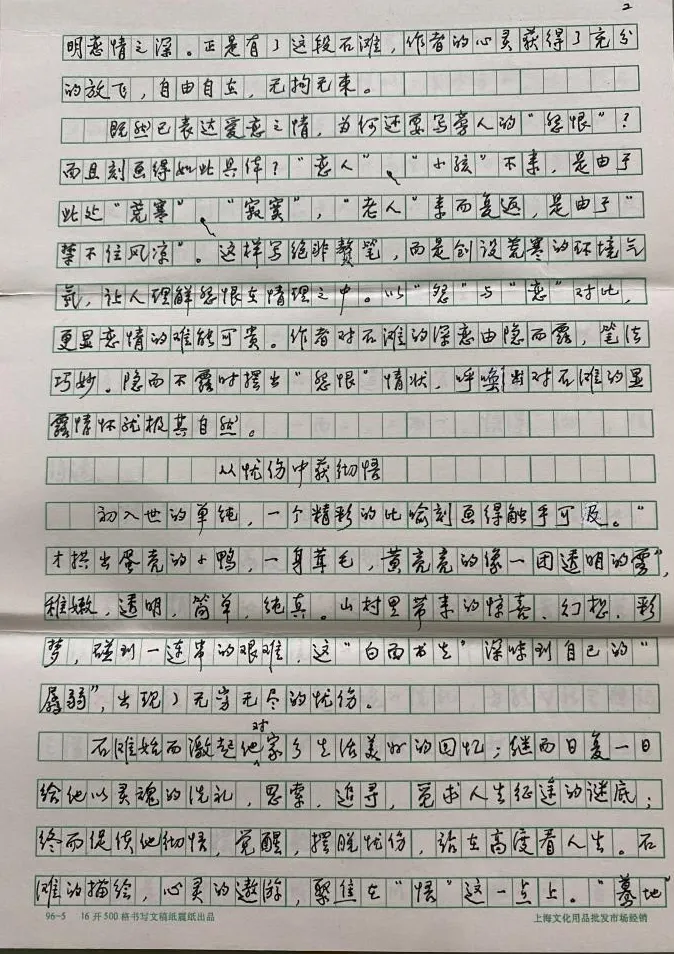 2
明恋情之深。正是有了这段石滩，作者的心灵获得了充分
的放飞，自由自在，无拘无束。
既然已表达爱恋之情，为何还要写旁人的“怨恨”？
而且刻画得如此具体？“恋人”、“小孩”不来，是由于
此处“荒寒”、“寂寞”，“老人”来而复返，是由于“
禁不住风凉”。这样写绝非赘笔，而是创设荒寒的环境气
氛，让人理解怨恨在情理之中。以“怨”与“恋”对比，
更显恋情的难能可贵。作者对石滩的深恋由隐而露，笔法
巧妙。隐而不露时摆出“怨恨”情状，呼唤出对石滩的显
露情怀就极其自然。
从忧伤中获彻悟
初入世的单纯，一个精彩的比喻刻画得触手可及。“
才拱出蛋壳的小鸭，一身茸毛，黄亮亮的像一团透明的雾”，
稚嫩，透明，简单，纯真。山村里带来的惊喜、幻想、彩
梦，碰到一连串的艰难，这“白面书生”深味到自己的“
孱弱”，出现了无穷无尽的忧伤。
石滩始而激起他对家乡生活美好的回忆；继而日复一日
给他以灵魂的洗礼，思索，追寻，觅求人生征途的谜底；
终而促使他彻悟，觉醒，摆脱忧伤，站在高度看人生。石
滩的描绘，心灵的遨游，聚焦在“悟”这一点上。“蓦地
96-5 16开500格书写文稿纸震纸出品 上海文化用品批发市场经销